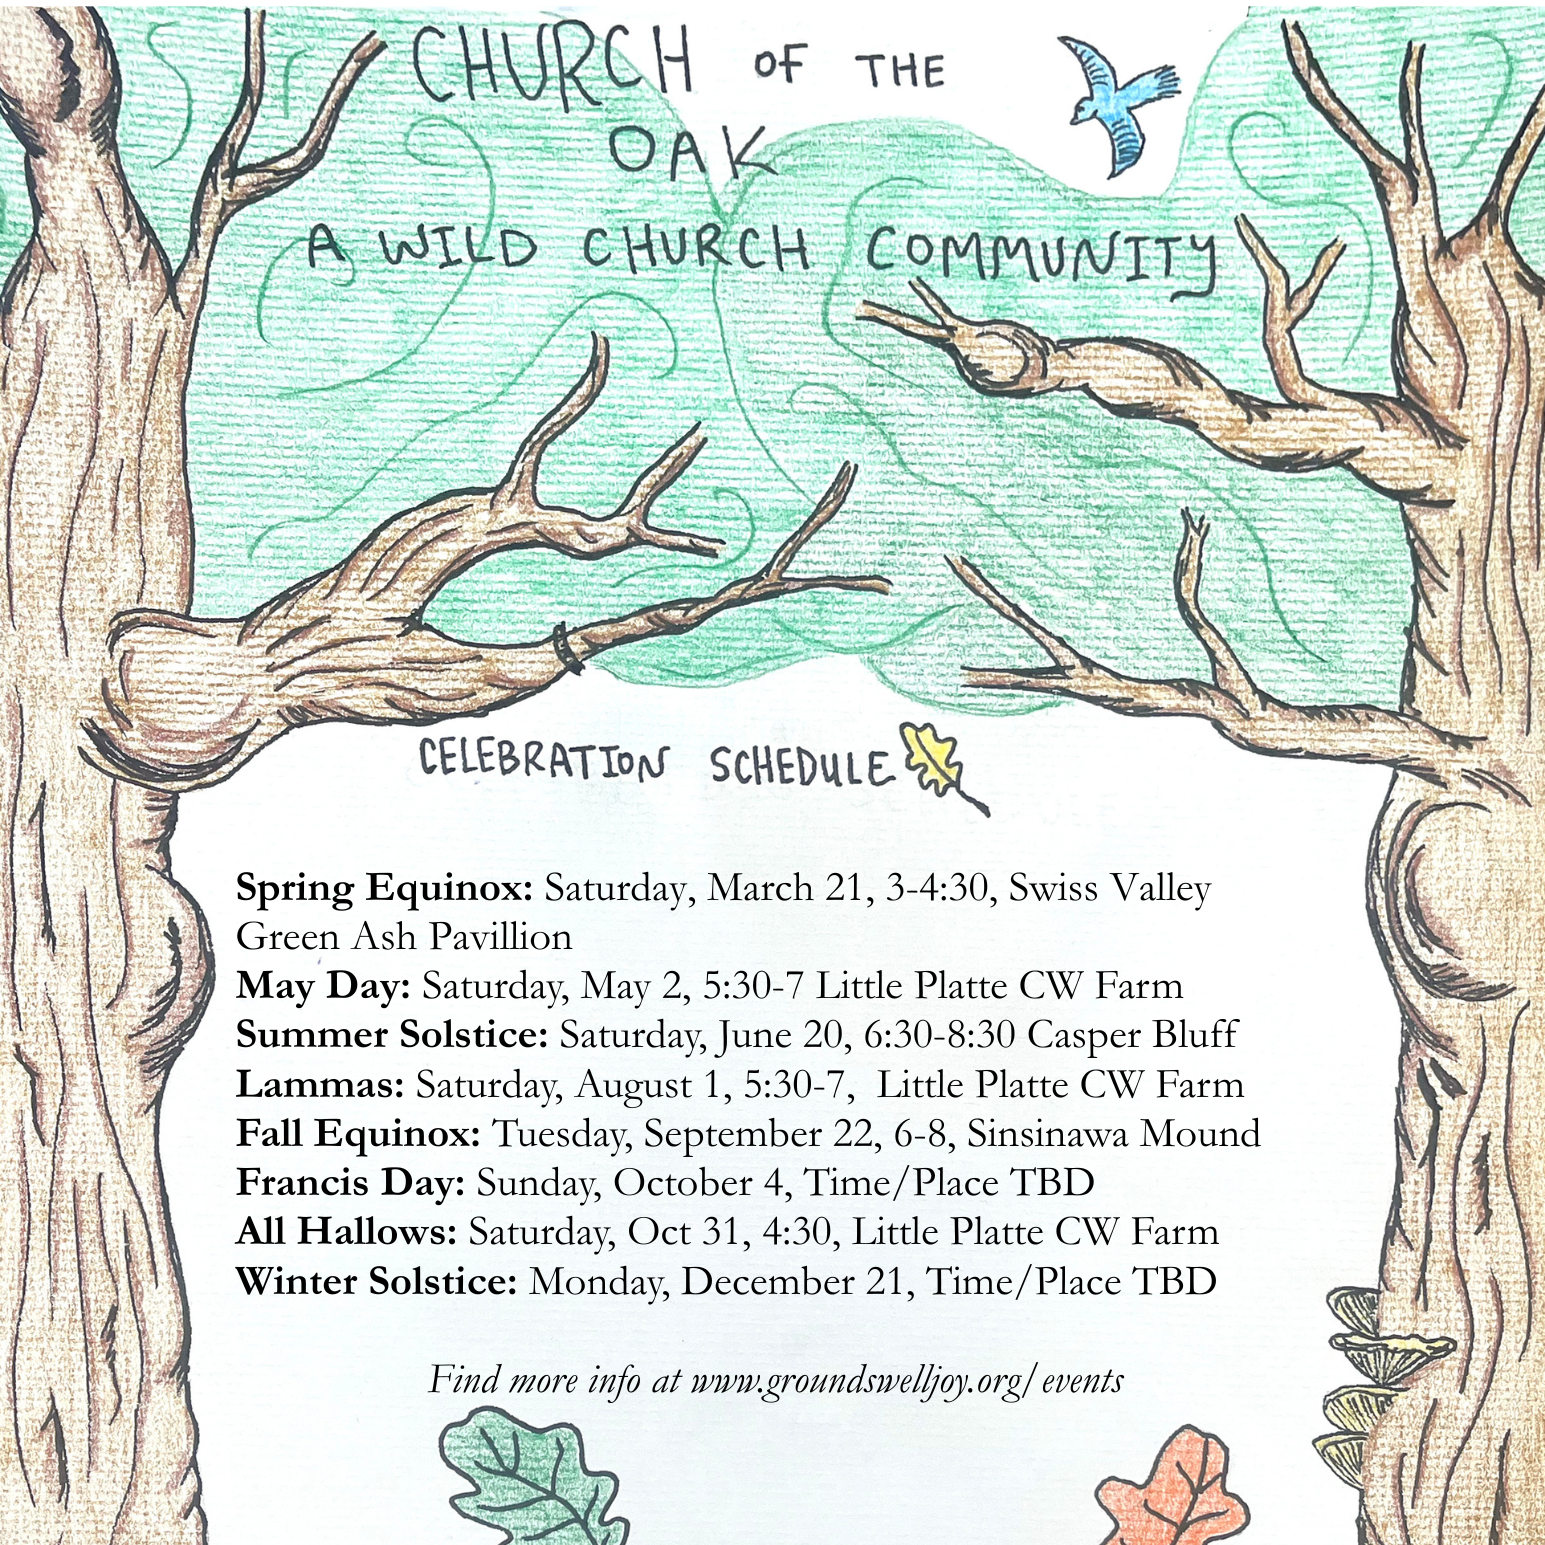 CHURCH OF THE
OAK
A WILD CHURCH COMMUNITY
CELEBRATION SCHEDULE
Spring Equinox: Saturday, March 21, 3-4:30, Swiss Valley
Green Ash Pavillion
May Day: Saturday, May 2, 5:30-7 Little Platte CW Farm
Summer Solstice: Saturday, June 20, 6:30-8:30 Casper Bluff
Lammas: Saturday, August 1, 5:30-7,  Little Platte CW Farm
Fall Equinox: Tuesday, September 22, 6-8, Sinsinawa Mound
Francis Day: Sunday, October 4, Time/Place TBD
All Hallows: Saturday, Oct 31, 4:30, Little Platte CW Farm
Winter Solstice: Monday, December 21, Time/Place TBD
Find more info at www.groundswelljoy.org/events